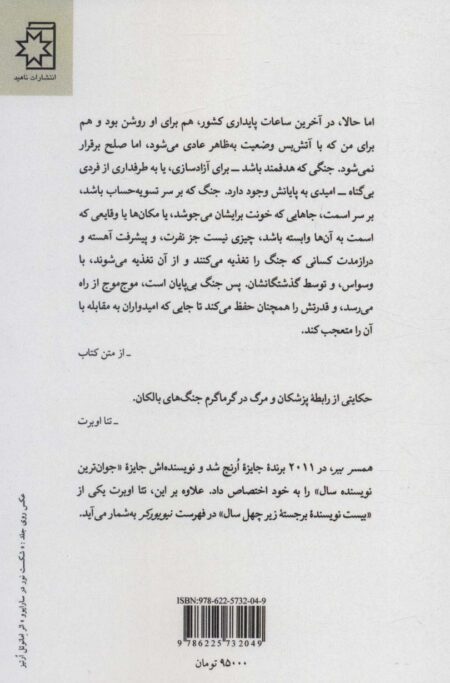 انتشارات ناهید
اما حالا، در آخرین ساعات پایداری کشور، هم برای او روشن بود و هم
برای من که با آتش‌بس وضعیت به‌ظاهر عادی می‌شود، اما صلح برقرار
نمی‌شود. جنگی که هدفمند باشد ــ برای آزادسازی، یا به طرفداری از فردی
بی‌گناه ــ امیدی به پایانش وجود دارد. جنگ که بر سر تسویه‌حساب باشد،
بر سر اسمت، جاهایی که خونت برایشان می‌جوشد، یا مکان‌ها یا وقایعی که
اسمت به آن‌ها وابسته باشد، چیزی نیست جز نفرت، و پیشرفت آهسته و
درازمدت کسانی که جنگ را تغذیه می‌کنند و از آن تغذیه می‌شوند، با
وسواس، و توسط گذشتگانشان. پس جنگ بی‌پایان است، موج‌موج از راه
می‌رسد، و قدرتش را همچنان حفظ می‌کند تا جایی که امیدواران به مقابله با
آن را متعجب کند.
ـ از متن کتاب
حکایتی از رابطهٔ پزشکان و مرگ در گرماگرم جنگ‌های بالکان.
ـ تئا اوبرت
همسر ببر، در ۲۰۱۱ برندهٔ جایزهٔ اُرنج شد و نویسنده‌اش جایزهٔ «جوان‌ترین
نویسنده سال» را به خود اختصاص داد. علاوه بر این، تئا اوبرت یکی از
«بیست نویسندهٔ برجستهٔ زیر چهل سال» در فهرست نیویورکر به‌شمار می‌آید.
عکس روی جلد: «شکست نور در سارایوو» اثر امانوئل اُرتیز
ISBN:978-622-5732-04-9
9 786225 732049
۹۵۰۰۰ تومان